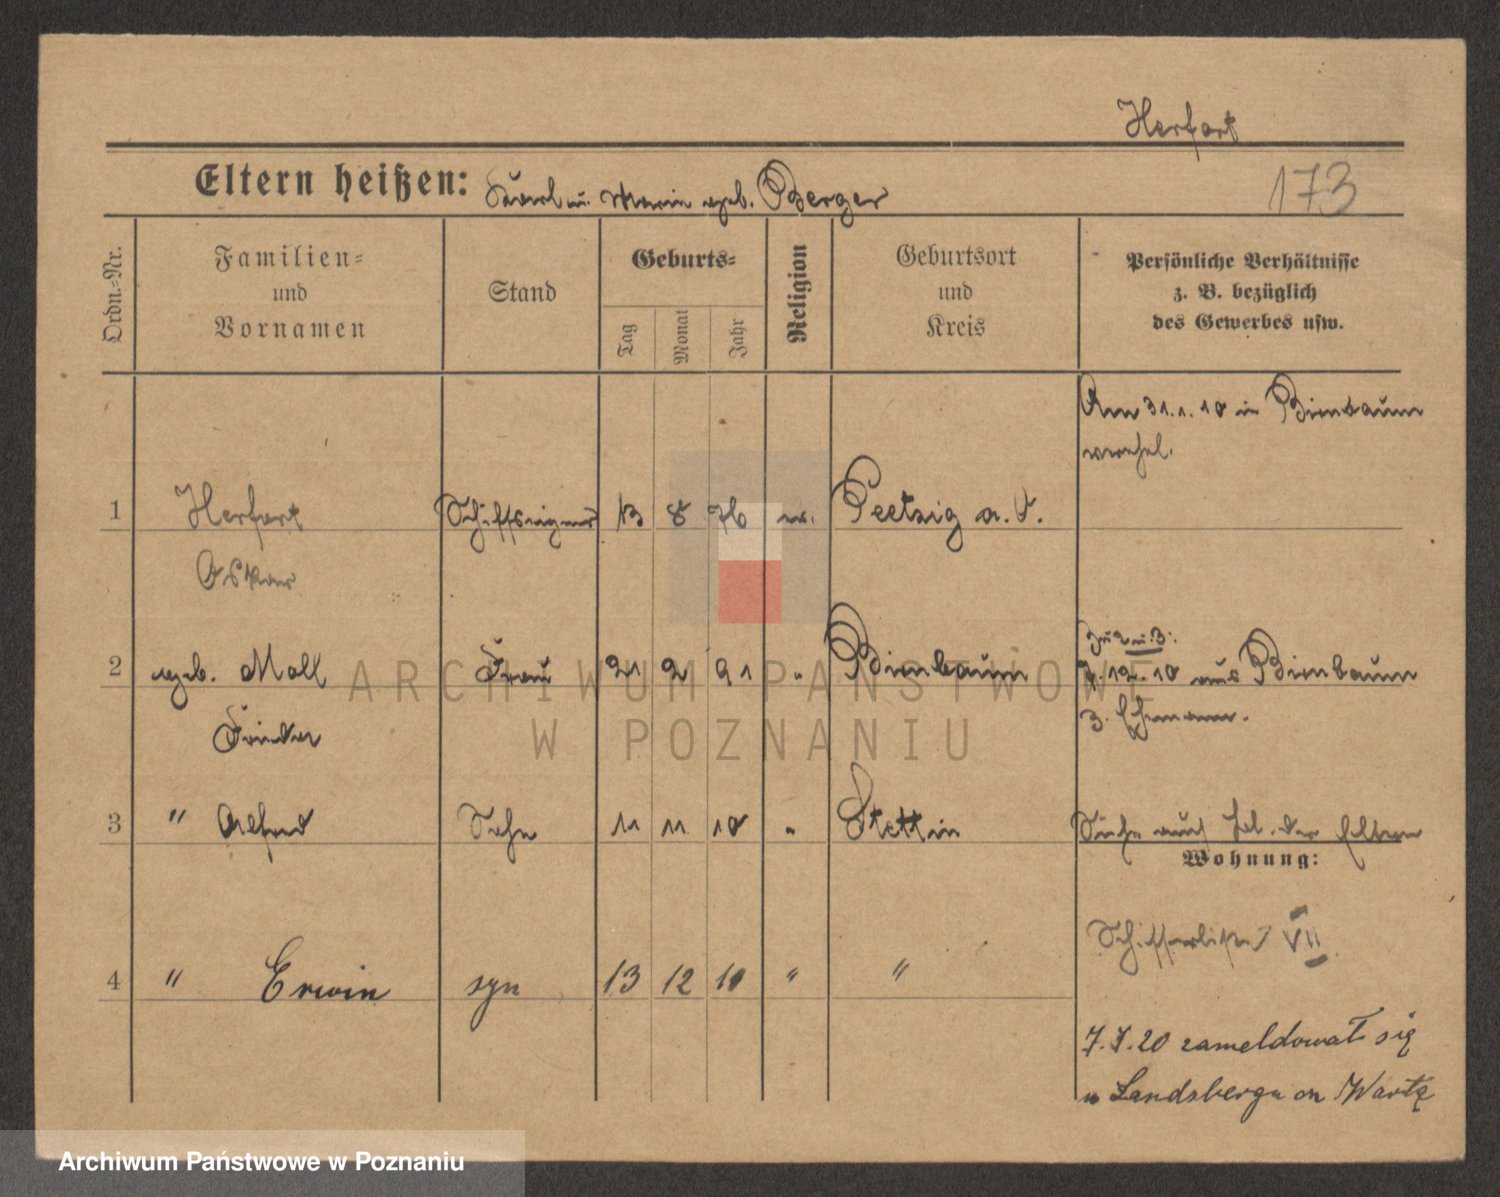 Herfart
Eltern heißen: Karl u. Marie geb. Berger
173
Ordn.-Nr.
Familien-
und
Vornamen
Stand
Geburts-
Tag
Monat
Jahr
Religion
Geburtsort
und
Kreis
Persönliche Verhältnisse
z. B. bezüglich
des Gewerbes usw.
Am 31.1.10 in Birnbaum
1 Herfart Schiffseigner 13 8 76 ev. Peetzig a. O.
Oskar
Zu 2 u. 3:
2 geb. Moll Frau 21 2 91 " Birnbaum
12.10 aus Birnbaum
Frieda
z. Ehemann.
3 " Alfred Sohn 11 11 10 " Stettin
Siehe auch der Eltern
Wohnung:
Schifferliste VII
4 " Erwin syn 13 12 10 " "
20 zameldował się
w Landsbergu on Wartę
ARCHIWUM PAŃSTWOWE
W POZNANIU
Archiwum Państwowe w Poznaniu